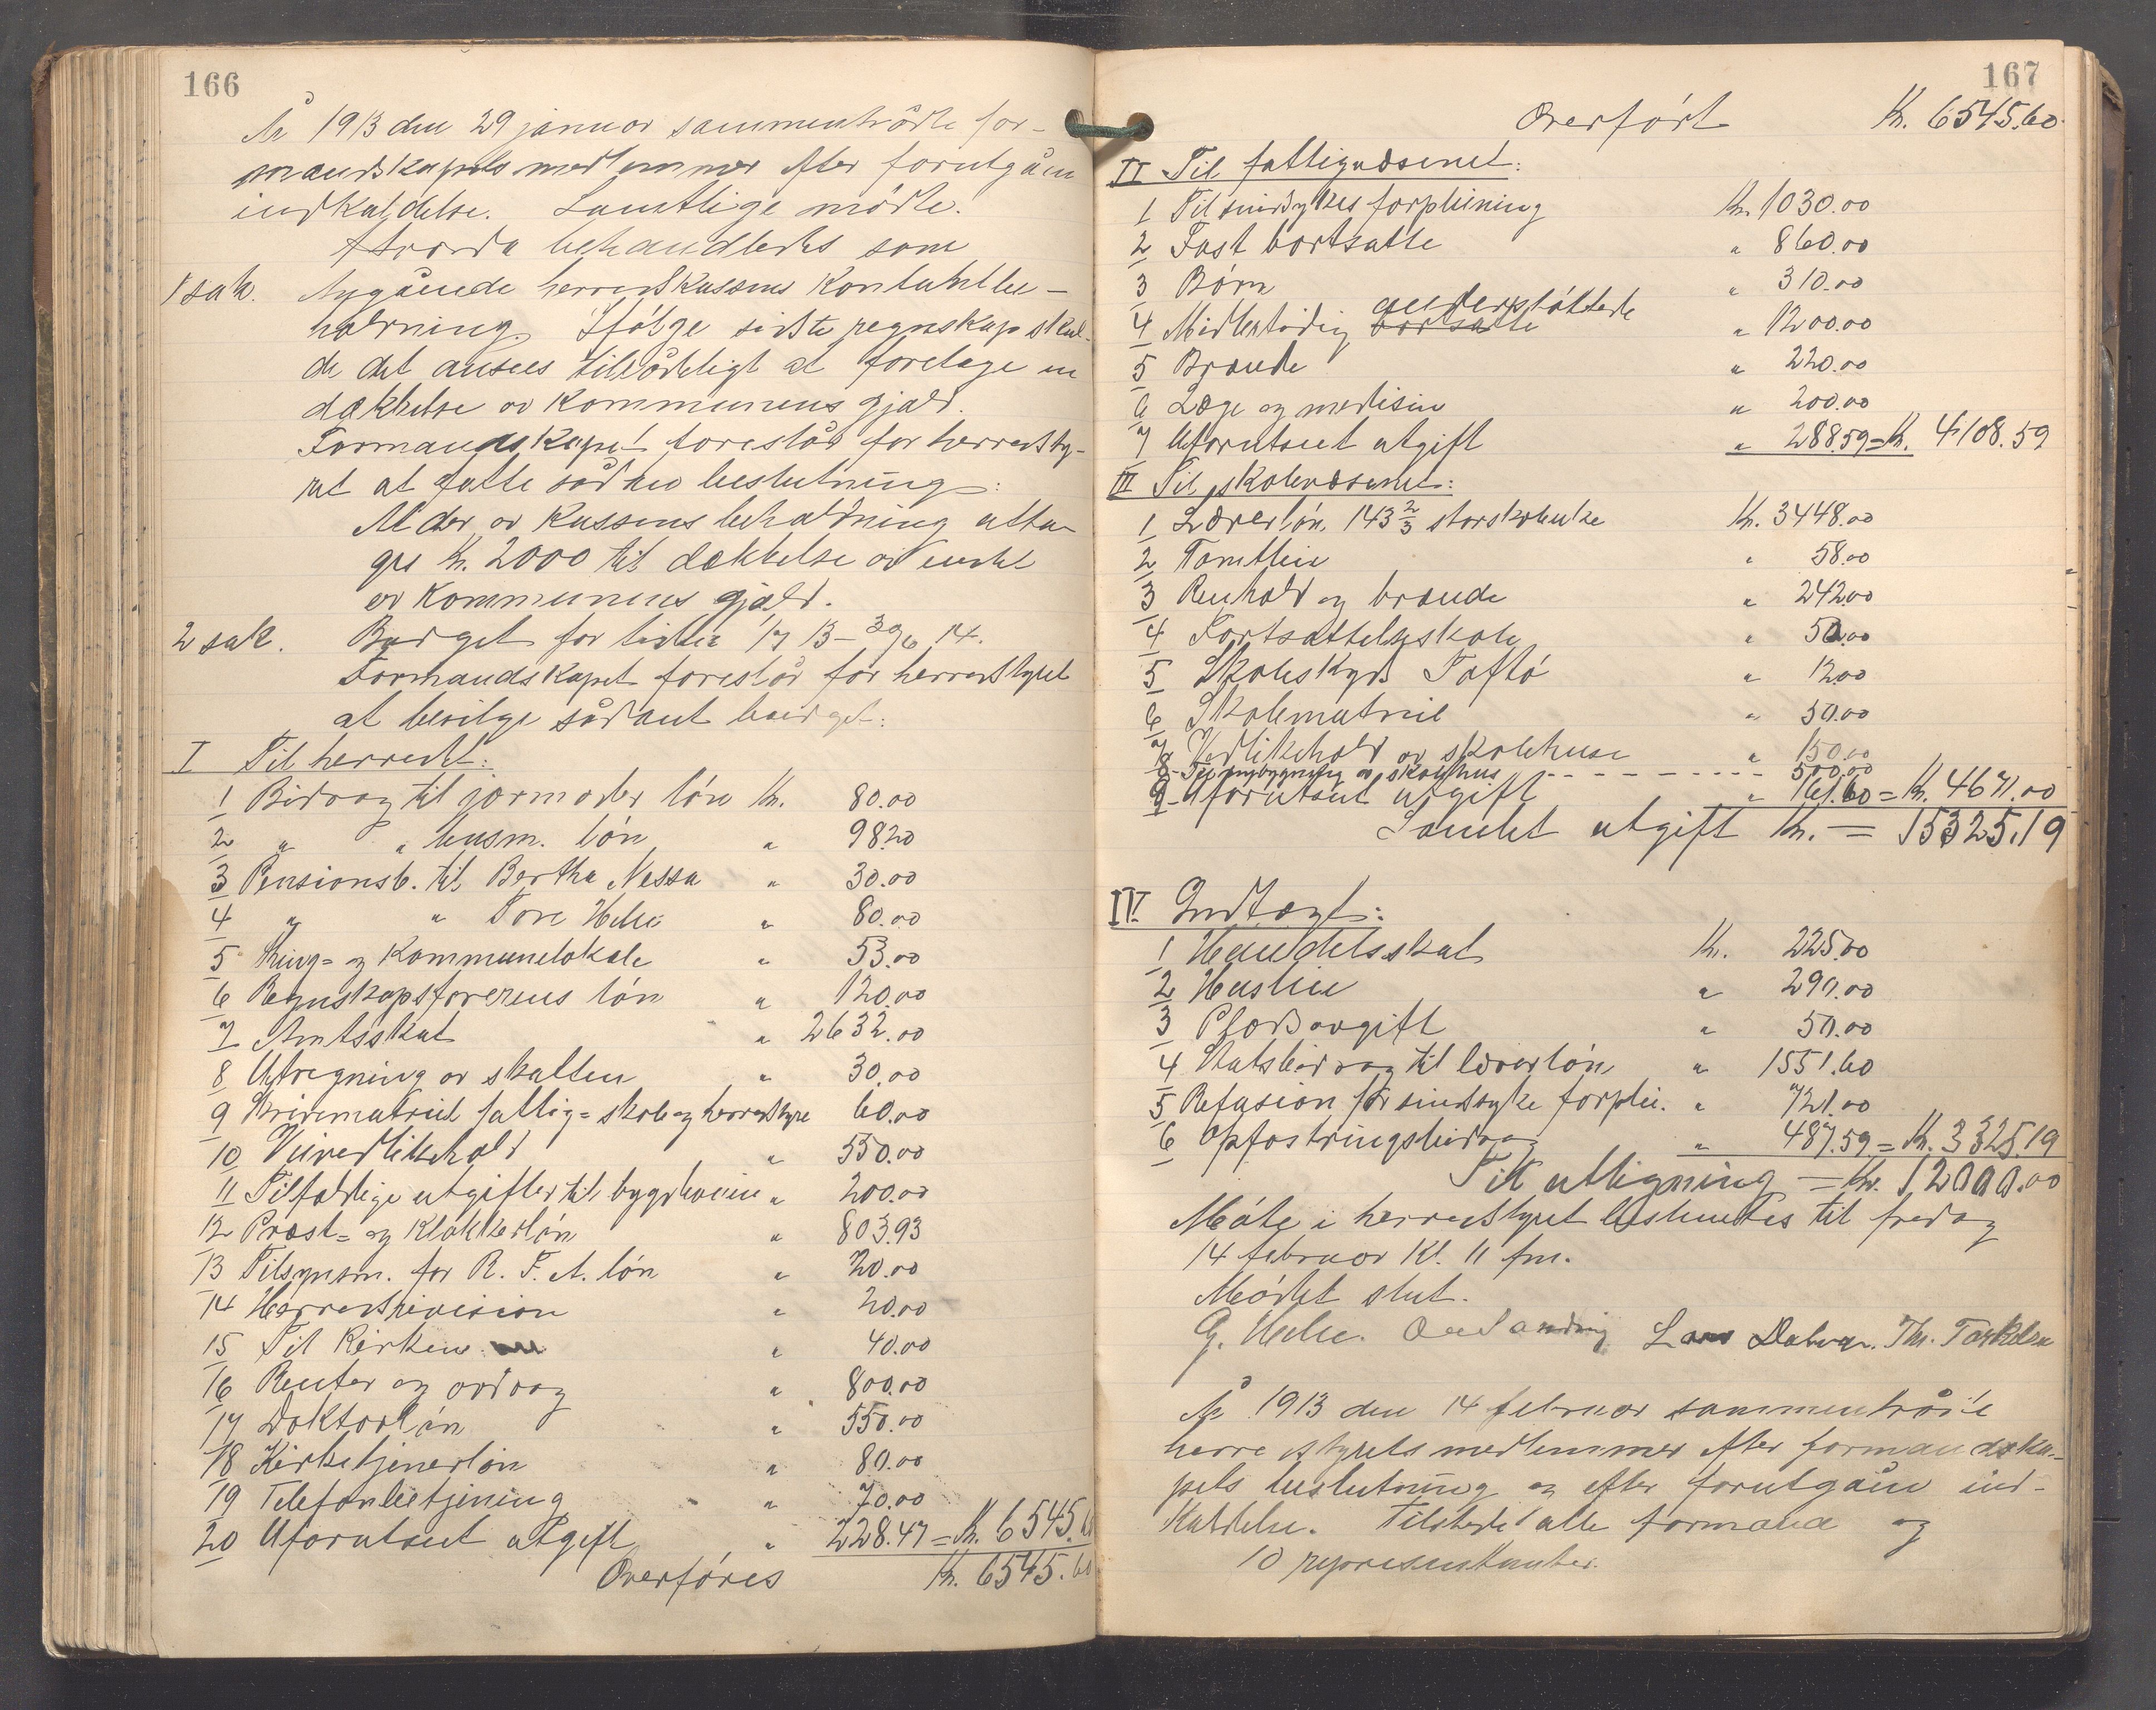 166
År 1913 den 29 januar sammentrådte for-
mandskapets medlemmer efter forutgåen
indkaldelse. Samtlige mödte.
Straxda behandledes som
1 sak. Angående herredskassens Kontantbe-
holdning. Ifölge sidste regnskap skul-
de det ansees tilrådeligt at foretage en
dækkelse av Kommunens gjæld.
Formandskapet foreslår for herredsty-
ret at fatte sådan beslutning:
At der av Kassens beholdning utta-
ges Kr. 2000 til dækkelse av endel
av Kommunens gjæld.
2 sak. Budget for tiden 1/7 13 - 30/6 14.
Formandskapet foreslår for herredstyret
at bevilge sådant budget:
I Til herredet:
1 Bidrag til jormoder lön Kr. 80.00
2 " " husm. lön " 98.20
3 Pensionsb. til Bertha Nessa " 30.00
4 " " Tore Helse " 80.00
5 Thing- og Kommunelokale " 53.00
6 Regnskapsförerens lön " 120.00
7 Amtsskat " 2632.00
8 Utregning av skatten " 30.00
9 Skrivematriel fattig- skole og herredstyre 60.00
10 Veivedlikehold " 550.00
11 Tilfældige utgifter til bygdeveiene " 200.00
12 Præst- og Klokkerlön " 803.93
13 Tilsynsm. for R. F. A. lön " 20.00
14 Herredsrevision " 20.00
15 Til Kirken " 40.00
16 Renter og avdrag " 800.00
17 Doktorlön " 550.00
18 Kirketjenerlön " 80.00
19 Telefonbetjening " 70.00
20 Uforutseet utgift " 228.47 = Kr. 6545.60
Overföres Kr. 6545.60
167
Overfört Kr. 6545.60
II Til fattigvæsenet:
1 Til sindsykes forpleining Kr. 1030.00
2 Fast bortsatte " 860.00
3 Börn " 310.00
understöttede
4 Midlertidig bortsatte " 1200.00
5 Brænde " 220.00
6 Læge og medisin " 200.00
7 Uforutseet utgift " 288.59 = Kr. 4108.59
III Til skolevæsenet:
1 Lærerlön, 143 2/3 storskoleuke Kr. 3448.00
2 Tomtleie " 58.00
3 Renhold og brænde " 242.00
4 Fortsættelsesskole " 50.00
5 Skoleskyds Toftö " 12.00
6 Skolematriel " 50.00
7 Vedlikehold av skolehuse " 150.00
8 Til nybygning av skolehus - - - - - - - 500.00
9 Uforutseet utgift " 161.60 = Kr. 4671.00
Samlet utgift Kr. = 15325.19
IV. Indtægt:
1 Handelsskat Kr. 225.00
2 Husleie " 290.00
3 Pladsavgift " 50.00
4 Statsbidrag til lærerlön " 1551.60
5 Refusion for sindsyke forplei. " 721.00
6 Opfostringsbidrag " 487.59 = Kr. 3325.19
Til utligning = Kr. 12000.00
Möte i herredstyret bestemtes til fredag
14 februar Kl. 11 fm.
Mödet slut.
G. Helle. Lars Dalva. Th. Torkelsen
År 1913 den 14 februar sammentråte
herredstyrets medlemmer efter formandska-
pets beslutning og efter forutgåen ind-
kaldelse. Tilstede alle formænd og
10 representanter.